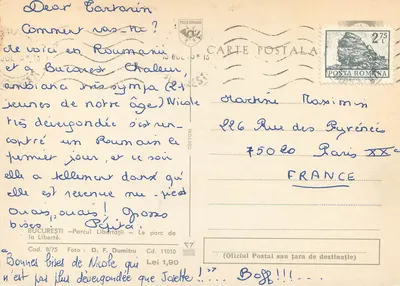 Dear Tartarin
Comment vas-tu?
Me voici en Roumanie
et à Bucarest. Chaleur,
ambiance très sympa (des
jeunes de notre âge) Nicole
très dévergondée s'est ren-
contré un Roumain le
premier jour, et ce soir
elle a tellement dansé qu'
elle est revenue nu-pieds
Ouais, ouais! Grosses
bises. Pépita.
BUCUREȘTI —Parcul Libertății — Le parc de
la Liberté.
Cod. 8/75 Foto: D. F. Dumitru Cd. 11010
Lei 1,90
"Bonnes bises de Nicole qui
n'est pas plus dévergondée que Josette!" Beff!!!....
CARTE POSTALĂ
2,75 L
POSTA ROMANA
Martine Maximin
226 Rue des Pyrénées
75020 Paris XXe
FRANCE
(Oficiul Poștal sau țara de destinație)